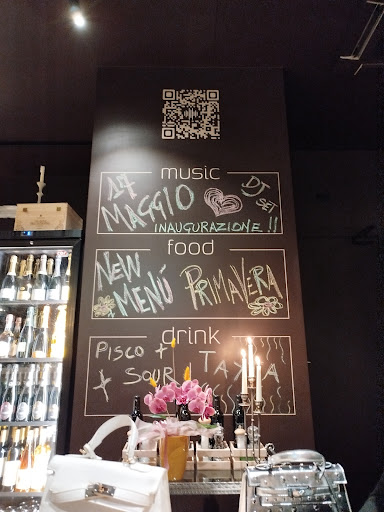 music
17 MAGGIO DJ SET
INAUGURAZIONE !!
food
NEW MENÚ PRIMAVERA
drink
PISCO +
SOUR